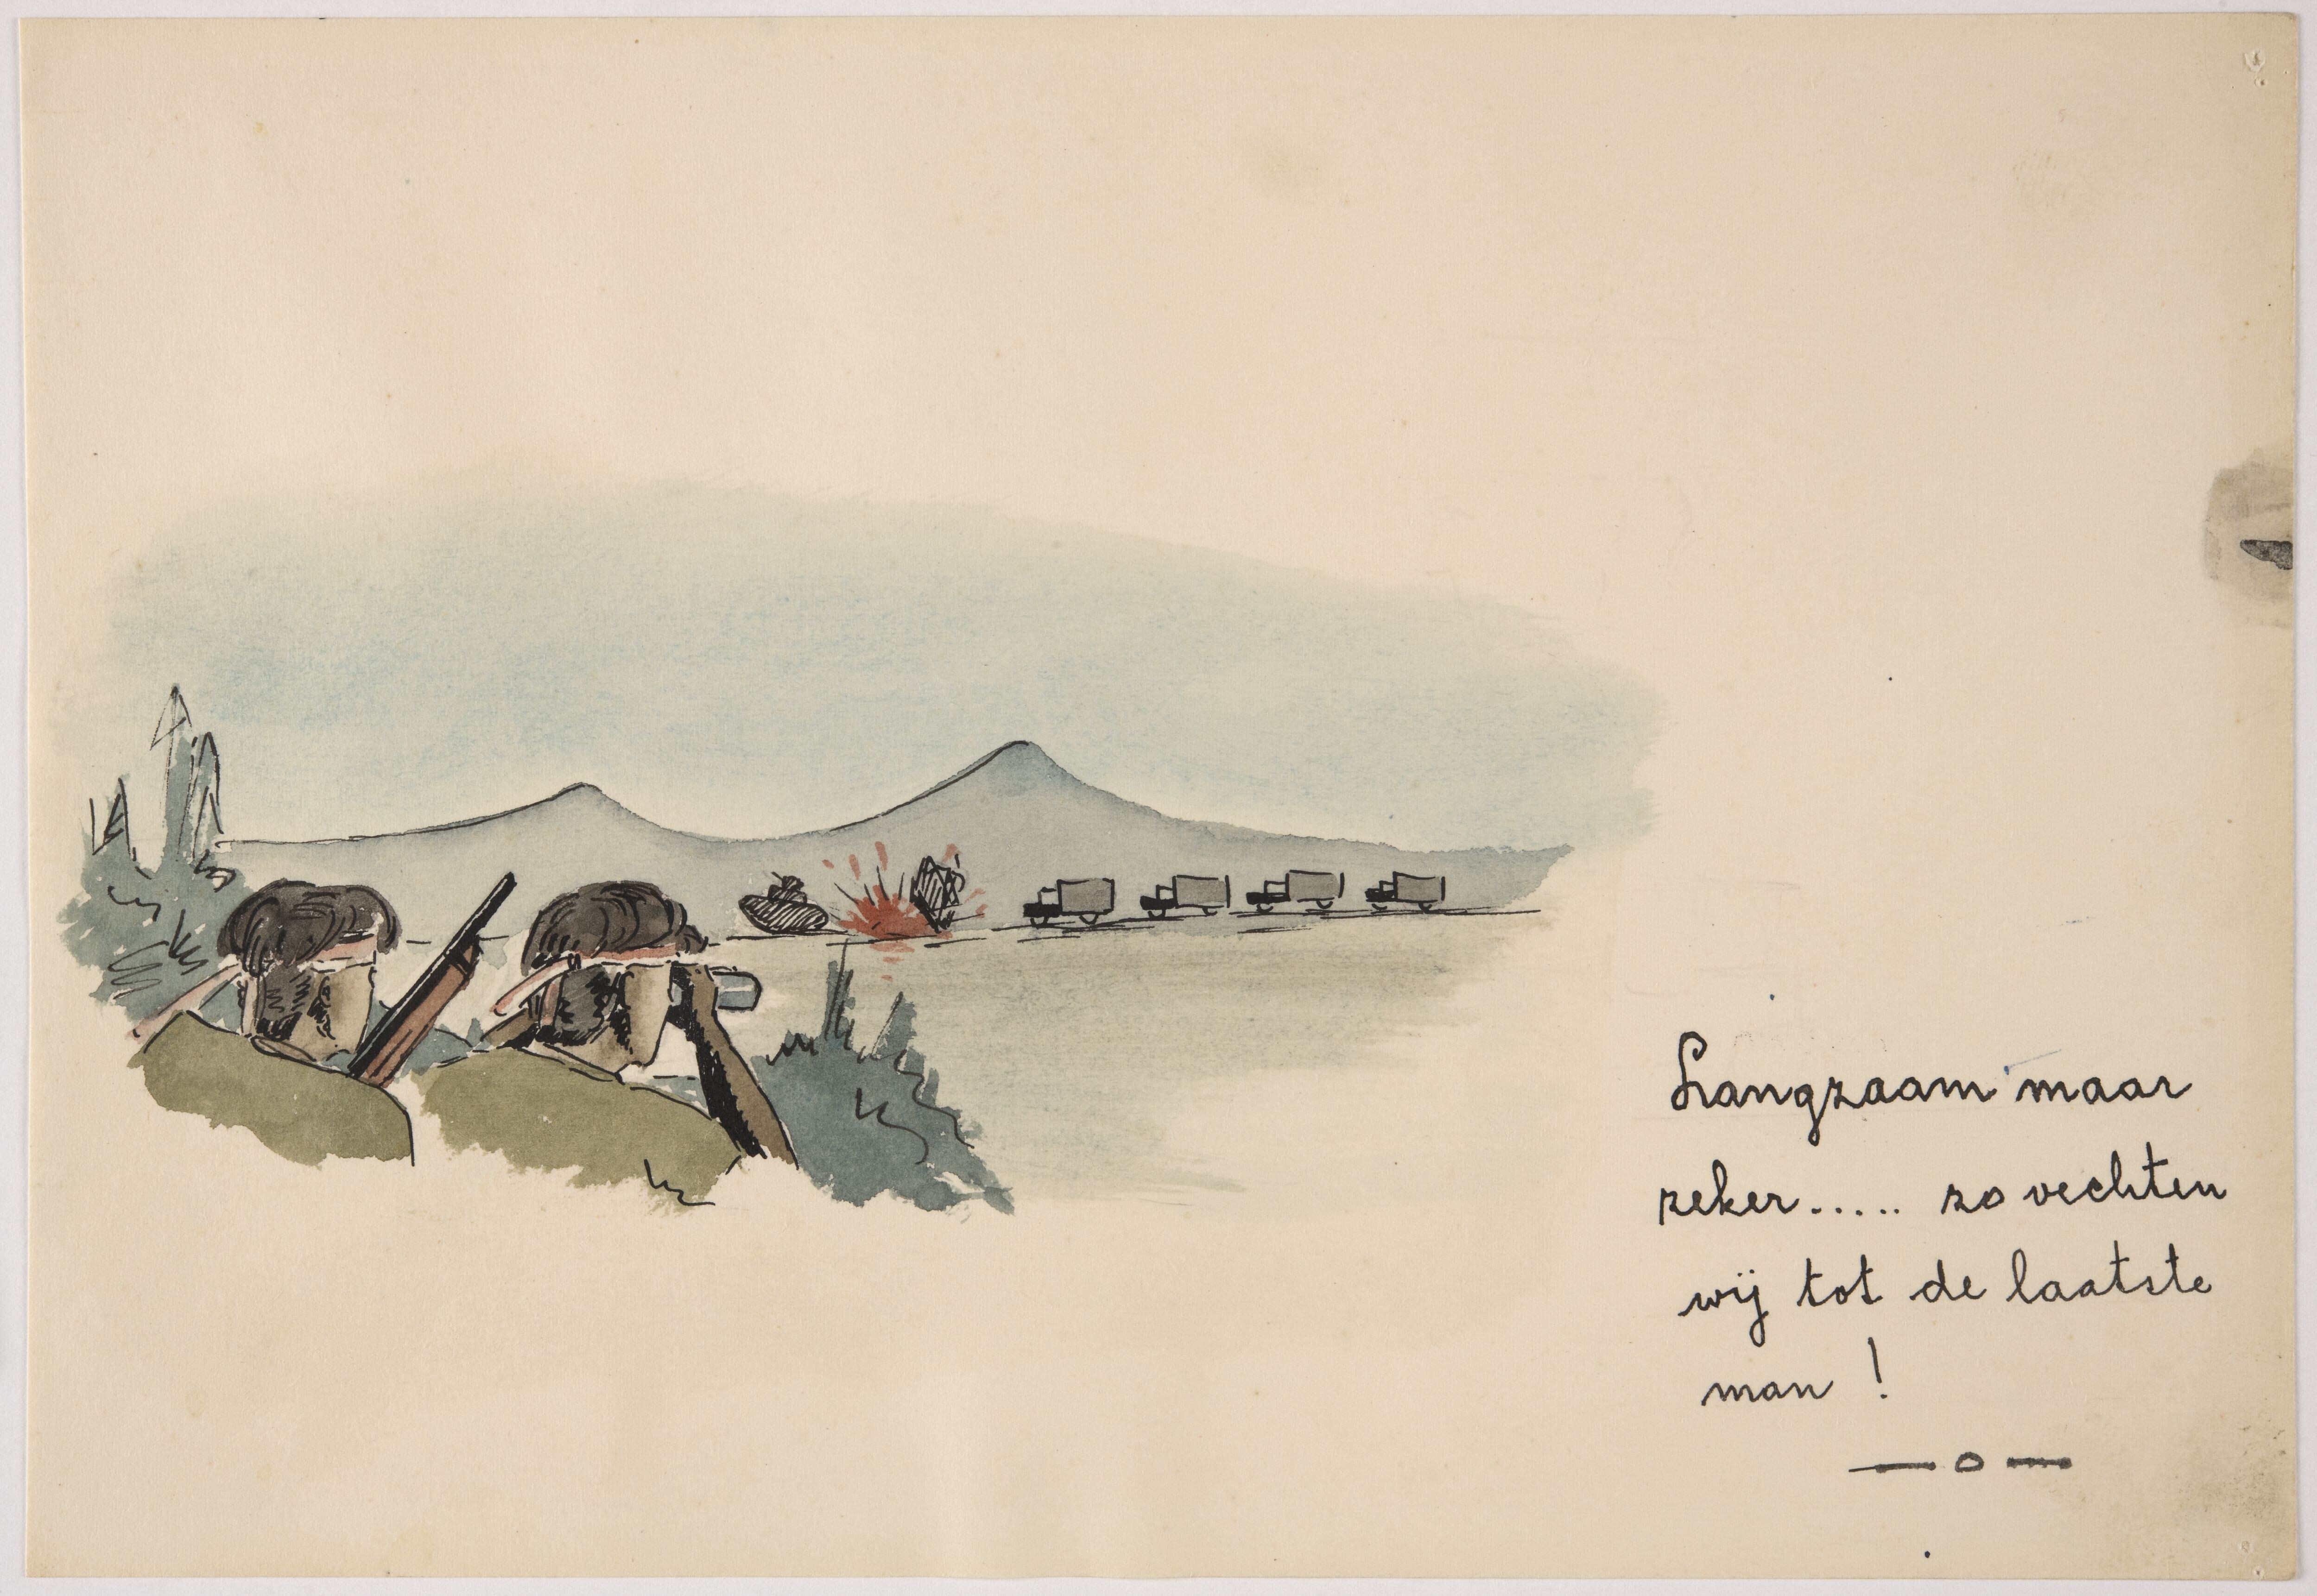 Langzaam maar
zeker..... zo vechten
wij tot de laatste
man !